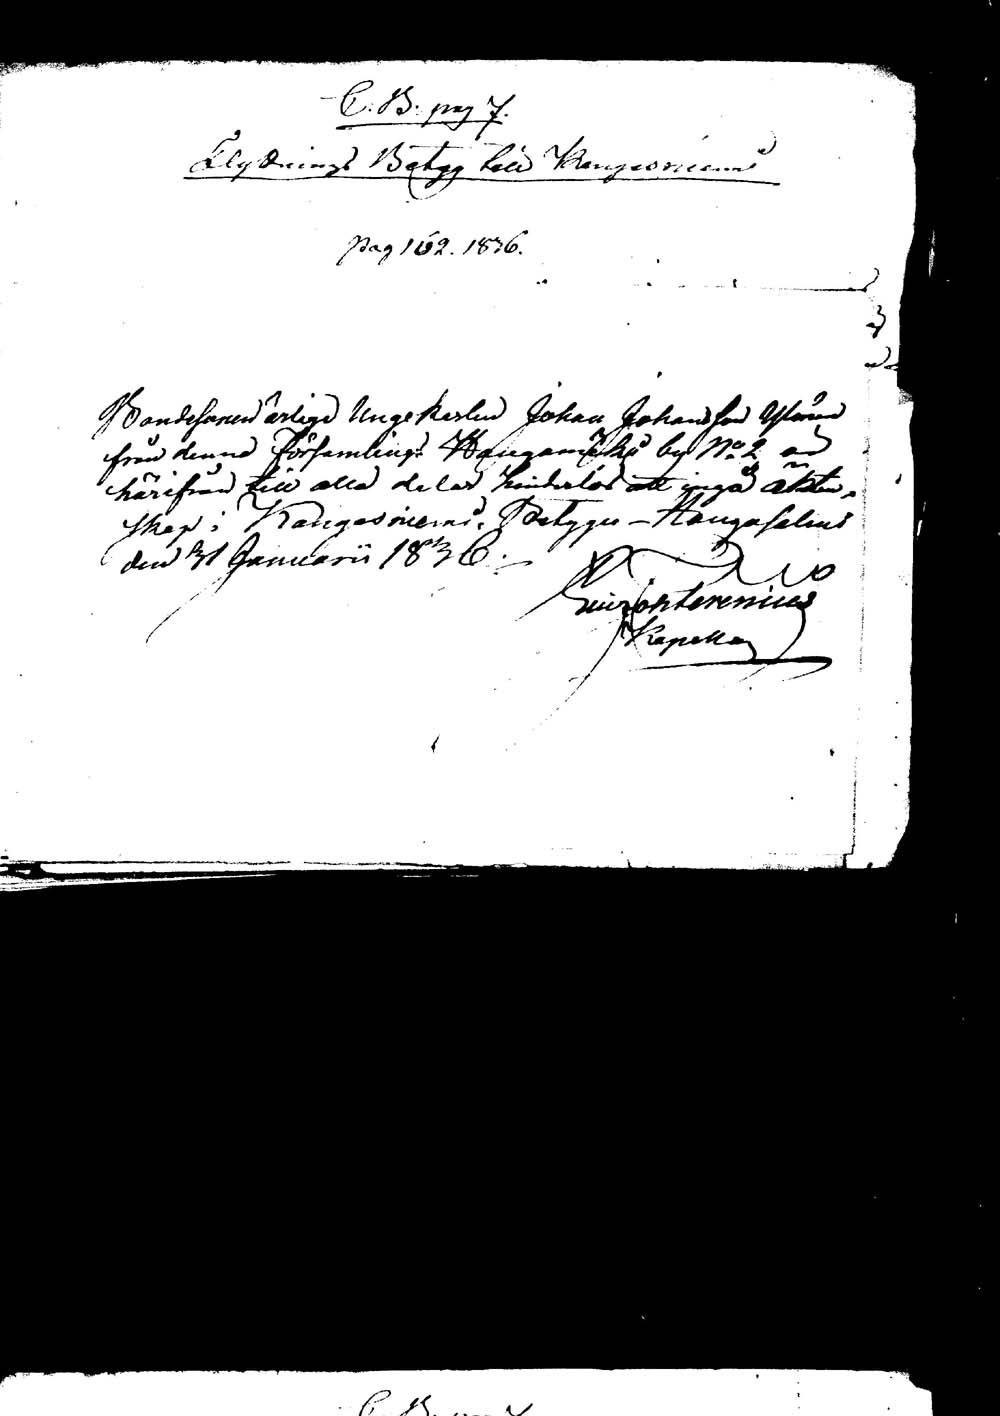 C. B. pag 7.
Flyttnings Betyg till Kangasniemi
pag 162. 1836.
Bondesonen ärlige Ungekarlen Johan Johansson
från denna Församlings Kangasmäki by No 2 är
härifrån till alla delar hinderlös att ingå äkten-
skap i Kangasniemi. Betygar - Haukasalmi
den 31 Januarii 1836.
Kapellan
C. B. pag 7